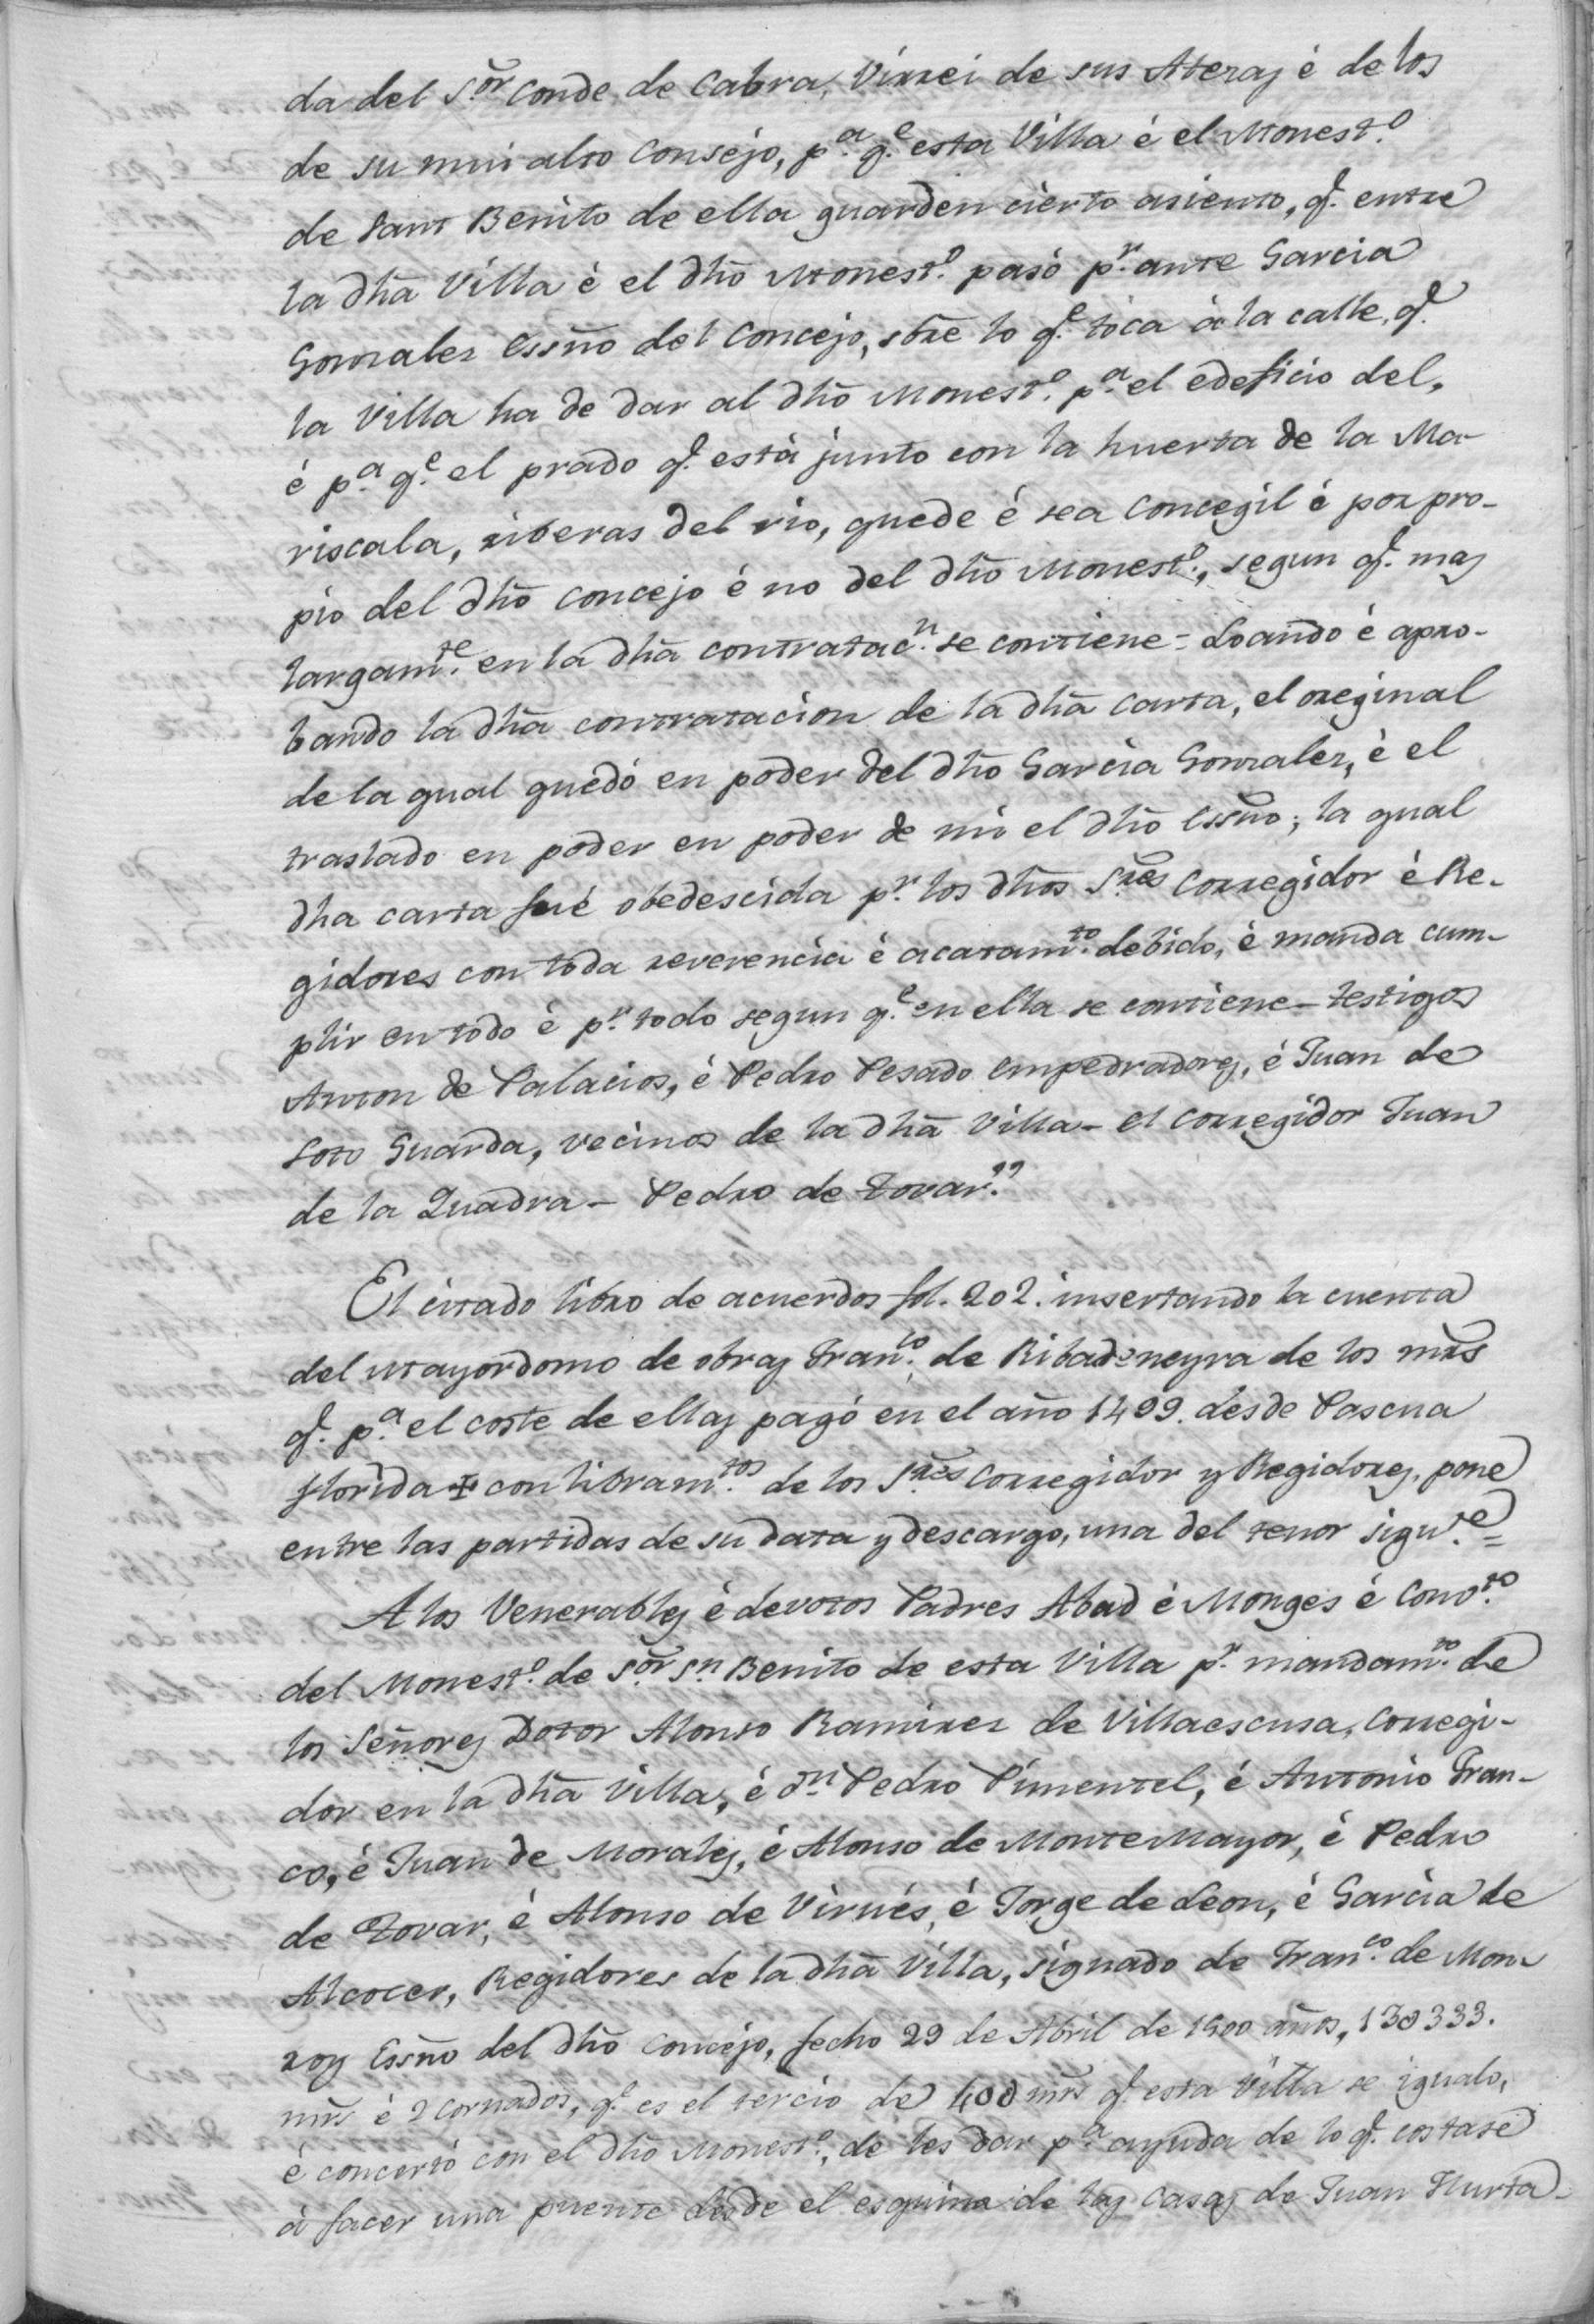 da del S.or Conde de Cabra, Virrei de sus Alteras é de los
de su mui alto Consejo, p.a q.e esta Villa é el Monest.o
de Sant Benito de ella guarden cierto asiento, q.e entre
la dha Villa é el dho Monest.o pasó p.r ante Garcia
Gonzalez Essno del Concejo, sbre lo q.e toca á la calle, q.e
la Villa ha de dar al dho Monest.o p.a el edeficio del,
é p.a q.e el prado q.e está junto con la huerta de la Ma-
riscala, riberas del rio, quede é sea Concegil é por pro-
pio del dho Concejo é no del dho Monest.o, segun q.e mas
largam.te en la dha contratac.n se contiene = Loando é apro-
bando la dha contratacion de la dha carta, el oreginal
de la qual quedó en poder del dho Garcia Gonzalez, é el
traslado en poder en poder de mi el dho Essno; la qual
dha carta fué obedescida p.r los dhos S.res Corregidor é Re-
gidores con toda reverencia é acatam.to debido, é manda cum-
plir en todo é p.r todo segun q.e en ella se contiene - testigos
Anton de Palacios, é Pedro Pesado empedradores, é Juan de
Soto Guarda, vecinos de la dha Villa - el Corregidor Juan
de la Quadra - Pedro de Tovar."
El citado libro de acuerdos fol. 202. insertando la cuenta
del Mayordomo de obras Fran.co de Ribadeneyra de los mrs
q.e p.a el coste de ellas pagó en el año 1499. desde Pascua
florida con libram.tos de los S.res Corregidor y Regidores, pone
entre las partidas de su data y descargo, una del tenor sigu.te =
A los Venerables é devotos Padres Abad é Monges é Conv.to
del Monest.o de S.or S.n Benito de esta Villa p.r mandam.to de
los Señores Dotor Alonso Ramirez de Villaescusa, Corregi-
dor en la dha Villa, é d.n Pedro Pimentel, é Antonio Fran-
co, é Juan de Morales, é Alonso de MonteMayor, é Pedro
de Tovar, é Alonso de Virués, é Jorge de Leon, é Garcia de
Alcocer, Regidores de la dha Villa, signado de Fran.co de Mon-
roy Essno del dho Concejo, fecho 29 de Abril de 1500 años, 13∂333.
mrs é 2 cornados, q.e es el tercio de 40∂ mrs q.e esta Villa se igualo,
é concertó con el dho Monest.o, de les dar p.a ayuda de lo q.e costase
á facer una puente desde el esquina de las Casas de Juan Hurta-